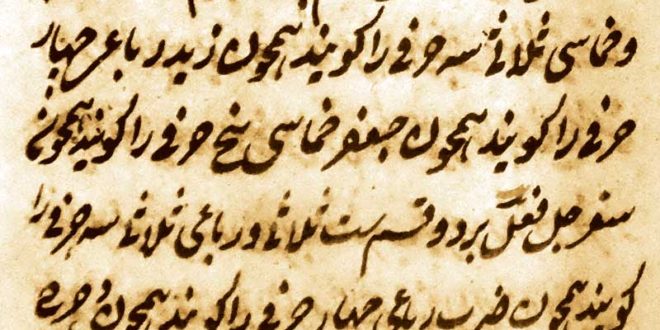 و خماسی ثلاثی سه حرفی را کویند همچون زید رباعی چهار
حرفی را کویند همچون جعفر خماسی پنج حرفی را کویند همچون
سفرجل فعل بر دو قسم ست ثلاثی و رباعی ثلاثی سه حرفی را
کویند همچون ضرب رباعی چهار حرفی را کویند همچون دحرج